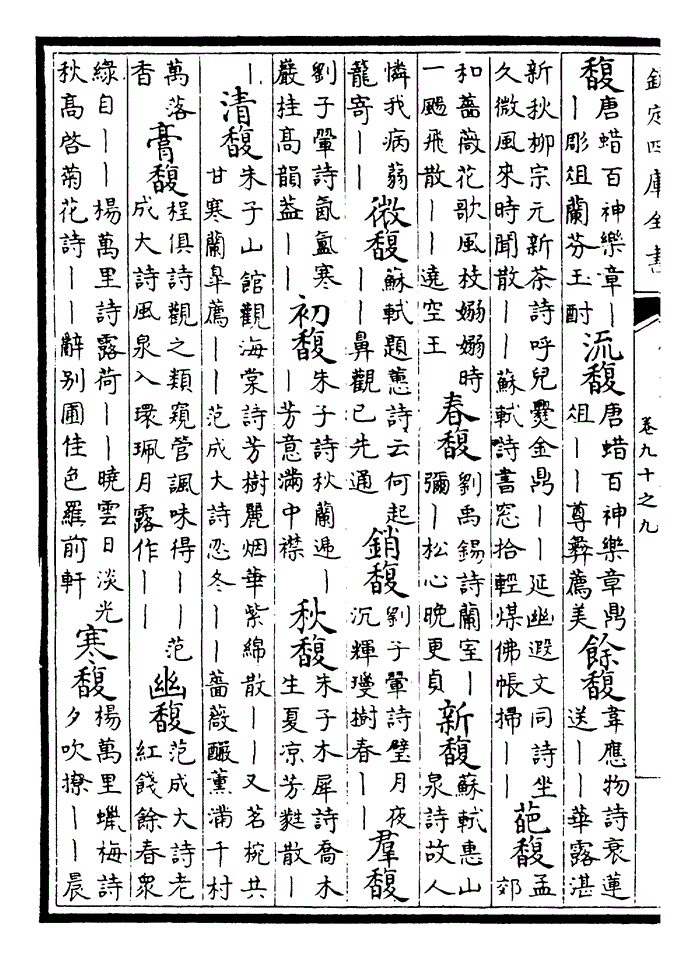 欽定四庫全書 卷九十之九
馥 唐蜡百神樂章丨丨彫俎蘭芬玉酎 流馥 唐蜡百神樂章鼎俎丨丨尊彛薦美 餘馥 韋應物詩衰蓮送丨丨華露湛
新秋柳宗元新茶詩呼兒爨金鼎丨丨延幽遐文同詩坐久微風來時聞散丨丨蘇軾詩書窓拾輕煤佛帳掃丨丨 葩馥 孟郊
和薔薇花歌風枝嫋嫋時一颺飛散丨丨遶空王 春馥 劉禹錫詩蘭室丨彌丨松心晚更貞 新馥 蘇軾惠山泉詩故人
憐我病蒻籠寄丨丨 微馥 蘇軾題蕙詩云何起丨丨鼻觀已先通 銷馥 劉子翬詩璧月夜沉輝璦樹春丨丨 羣馥
劉子翬詩氤氲寒嚴桂高韻葢丨丨 初馥 朱子詩秋蘭遞丨丨芳意滿中襟 秋馥 朱子木犀詩喬木生夏凉芳蕤散丨
丨 清馥 朱子山館觀海棠詩芳樹麗烟華紫綿散丨丨又茗椀共甘寒蘭臯薦丨丨范成大詩忍冬丨丨薔薇釅薰滿千村
萬落香 膏馥 桯俱詩觀之類窺管諷味得丨丨范成大詩風泉入環珮月露作丨丨 幽馥 范成大詩老紅餞餘春衆
綠自丨丨楊萬里詩露荷丨丨曉雲日淡光秋高啓菊花詩丨丨辭别圃佳色羅前軒 寒馥 楊萬里蠟梅詩夕吹撩丨丨晨